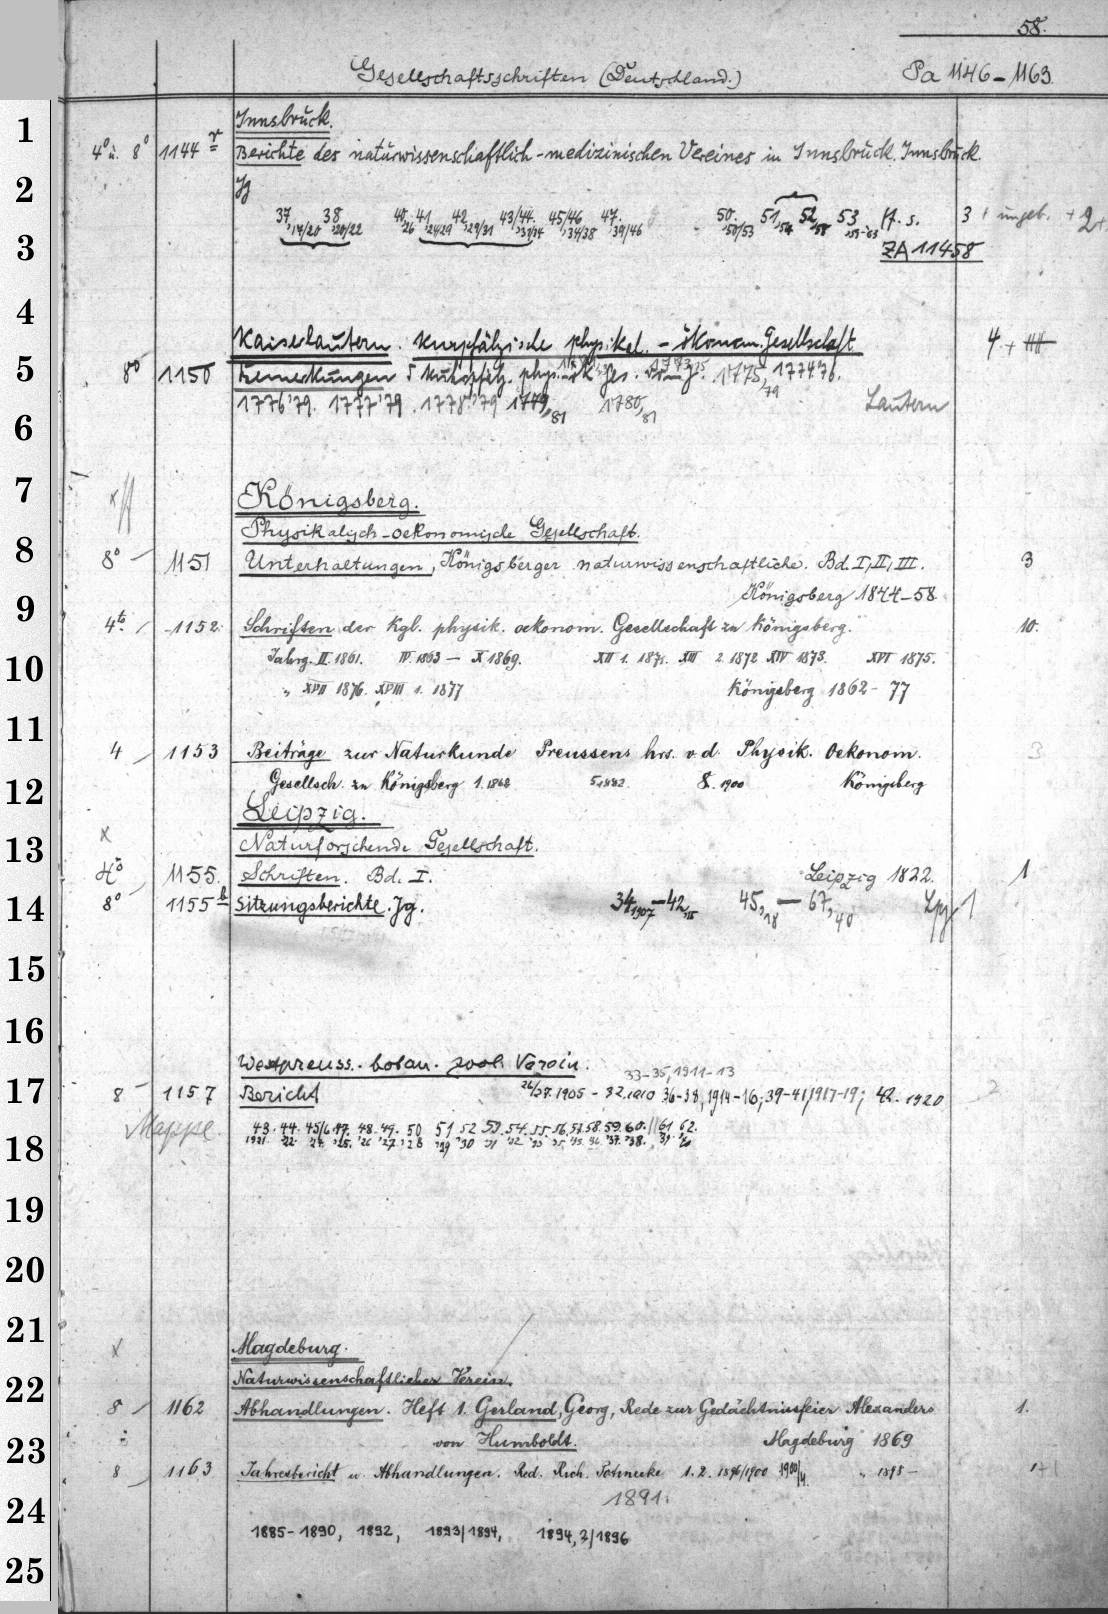 58.
Gesellschaftsschriften (Deutschland.) Pa 1146–1163
1
Innsbruck.
4° u. 8° 1144 r Berichte des naturwissenschaftlich-medizinischen Vereines in Innsbruck. Innsbruck.
2
Jg
37,17/20 38,20/22 40,26 41,24/29 42,29/31 43/44, 45/46,34/38 47,39/46 50,50/53 51,54 52,58 53 ff. s. 3 + ungeb. + 2+
3
ZA 11458
4
Kaiserslautern. Kurpfälzische physikal. – ökonom. Gesellschaft 4 +
5
8° 1150 Bemerkungen d Kurpfälz. phys. ök Ges. 1775,79 1774'76.
1776'79. 1777'79. 1778'79 1779,81 1780,81 Lautern
6
7
Königsberg.
8
Physikalisch-oekonomische Gesellschaft.
8° 1151 Unterhaltungen, Königsberger naturwissenschaftliche. Bd. I, II, III. 3
9
Königsberg 1844–58
4to. 1152. Schriften der Kgl. physik. oekonom. Gesellschaft zu Königsberg. 10.
10
Jahrg. II. 1861. IV. 1863 – X 1869. XII 1. 1871. XIII 2. 1872 XIV 1873. XVI 1875.
„ XVII 1876. XVIII 1. 1877 Königsberg 1862–77
11
4 1153 Beiträge zur Naturkunde Preussens hrs. v. d. Physik. Oekonom. 3
12
Gesellsch. zu Königsberg 1. 1868 5. 1882. 8. 1900 Königsberg
Leipzig.
x
13
Naturforschende Gesellschaft.
4° 1155. Schriften. Bd. I. Leipzig 1822. 1
14
8° 1155 b Sitzungsberichte. Jg. 34,1907–42,15 45,18 – 67,40 Lpg 1
15
16
Westpreuss. botan. zool. Verein.
33–35, 1911–13
17
8 1157 Bericht 26/27. 1905 – 32. 1910 36–38, 1914–16; 39–41, 1917–19; 42. 1920 2
Mappe. 43. 44. 45/6. 47. 48. 49. 50 51 52 53. 54. 55. 56. 57. 58. 59. 60. 61. 62.
18
1921. '22 '24. '25. '26 '27. '28 '29 '30 '31 '32 '33 '35. '35. '36. '37. '38. '39. '40
19
20
21
x Magdeburg.
22
Naturwissenschaftlicher Verein.
8 1162 Abhandlungen. Heft 1. Gerland, Georg, Rede zur Gedächtnisfeier Alexanders 1.
23
von Humboldt. Magdeburg 1869
8 1163 Jahresbericht u. Abhandlungen. Red. Rich. 1. 2. 1896/1900 1900/4. „ 1898 – 1+1
24
1891.
1885–1890, 1892, 1893/1894, 1894, 2/1896
25